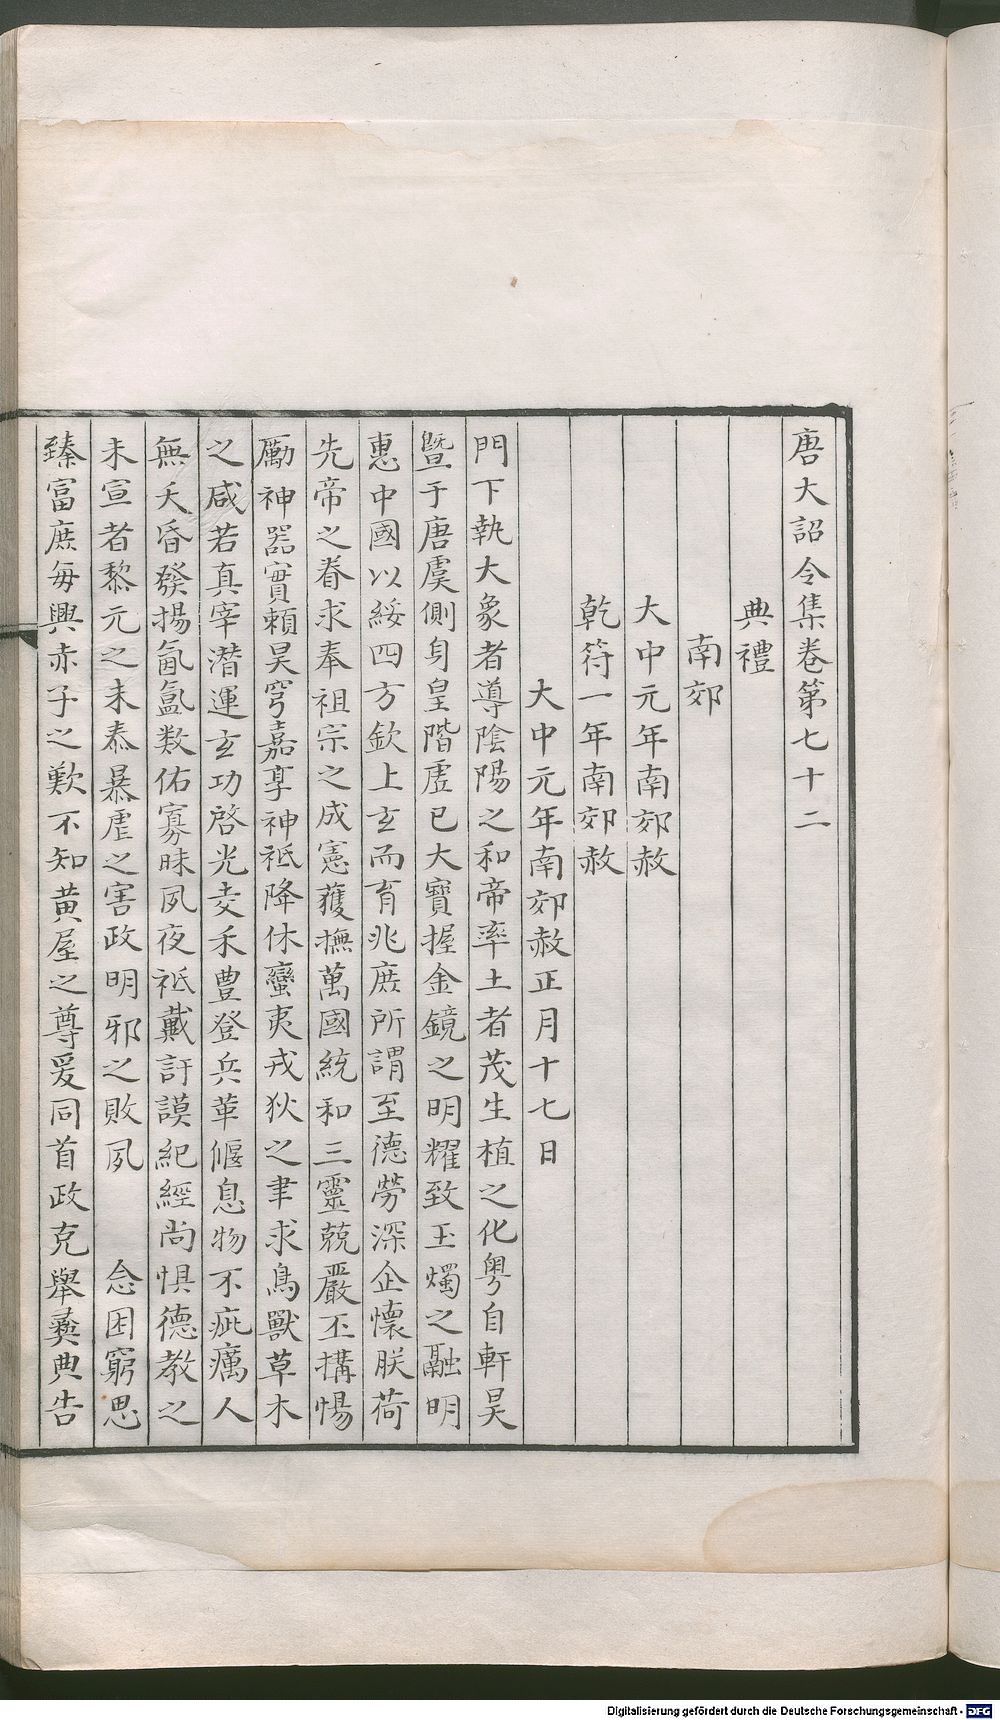 唐大詔令集卷第七十二
典禮
南郊
大中元年南郊赦
乾符一年南郊赦
大中元年南郊赦正月十七日
門下執大象者導陰陽之和帝率土者茂生植之化粵自軒昊
暨于唐虞側身皇階虛已大寶握金鏡之明耀致玉燭之融明
惠中國以綏四方欽上玄而育兆庶所謂至德勞深企懷朕荷
先帝之眷求奉祖宗之成憲獲撫萬國統和三靈兢嚴丕搆惕
勵神器實賴昊穹嘉享神祇降休蠻夷戎狄之聿求鳥獸草木
之咸若真宰潛運玄功啓光麦禾豐登兵革偃息物不疵癘人
無夭昏發揚氤氳数佑寡昧夙夜祇戴訏謨紀經尚惧德教之
未宣者黎元之未泰暴虐之害政明邪之敗夙　念困窮思
臻富庶每興赤子之歎不知黄屋之尊爰同首政克舉彞典告
Digitalisierung gefördert durch die Deutsche Forschungsgemeinschaft - DFG